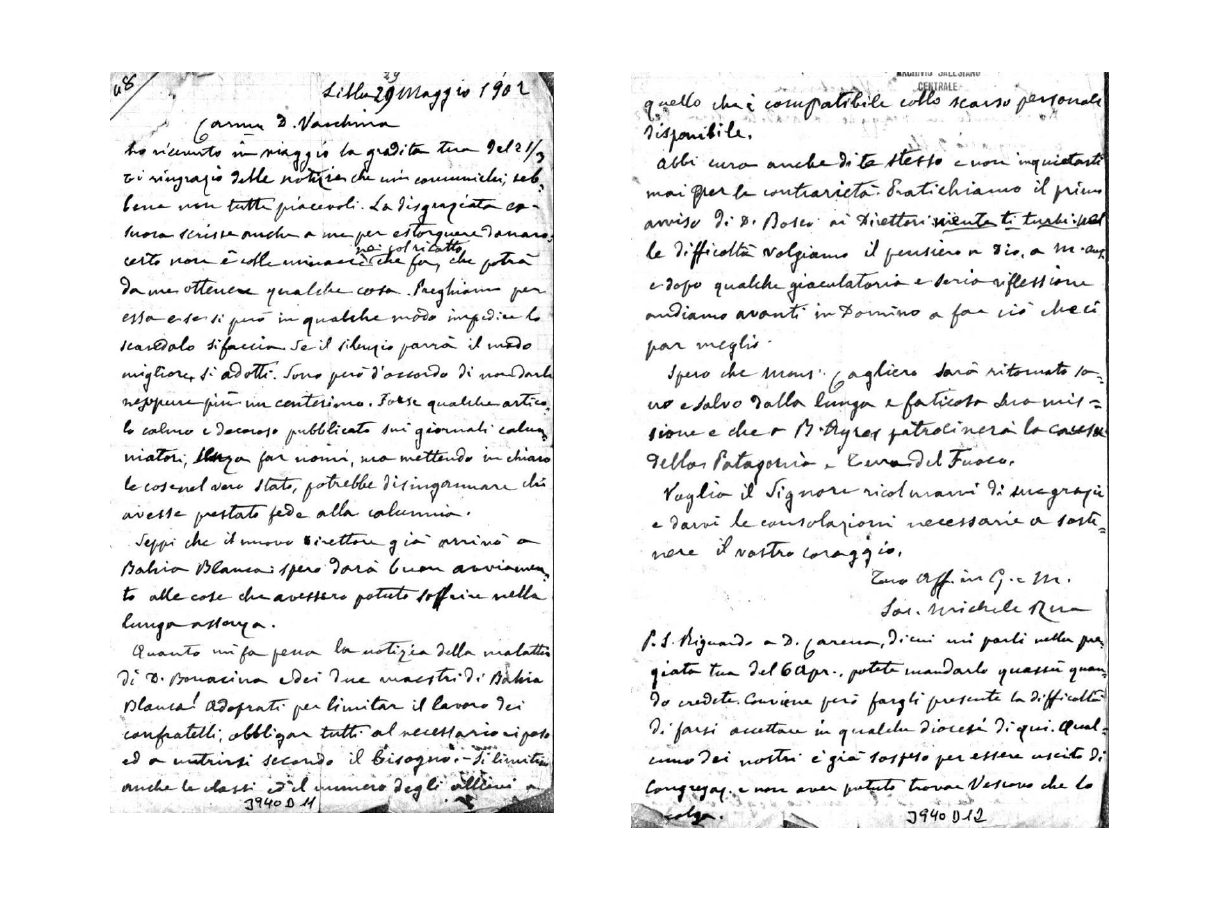 48
29
Lilla 29 Maggio 1902
Carmo D. Vacchina
ho ricevuto in viaggio la gradita tua del 21/3
ti ringrazio delle notizie che mi comunichi, seb-
bene non tutte piacevoli. La disgraziata
scrisse anche a me per estorquere danaro;
nè col ricatto
certo non è colle minacce che fa, che potrà
da me ottenere qualche cosa. Preghiamo per
essa e se si può in qualche modo impedire lo
scandalo si faccia. Se il silenzio parrà il modo
migliore, si adotti. Sono però d'accordo di non darle
neppure più un centesimo. Forse qualche artico-
lo calmo e decoroso pubblicato sui giornali calun-
niatori, senza far nomi, ma mettendo in chiaro
le cose nel vero stato, potrebbe disingannare chi
avesse prestato fede alla calunnia.
Seppi che il nuovo Direttore già arrivò a
Bahia Blanca: spero darà buon avviamen-
to alle cose che avessero potuto soffrire nella
lunga assenza.
Quanto mi fa pena la notizia della malattia
di D. Bonacina e dei due maestri di Bahia
Blanca! Adoprati per limitar il lavoro dei
confratelli, obbligar tutti al necessario riposo
ed a nutrirsi secondo il bisogno. - Si limitin
anche le classi ed il numero degli allievi a
3940 D 11
ARCHIVIO SALESIANO
CENTRALE
quello che è compatibile collo scarso personale
disponibile.
Abbi cura anche di te stesso e non inquietarti
mai per le contrarietà. Pratichiamo il primo
avviso di D. Bosco ai Direttori niente ti turbi: nel
le difficoltà volgiamo il pensiero a Dio, a M. aus.
e dopo qualche giaculatoria e seria riflessione
andiamo avanti in Domino a far ciò che ci
par meglio.
Spero che Mons. Cagliero sarà ritornato sa-
no e salvo dalla lunga e faticosa sua mis=
sione e che a B. Ayres patrocinerà la causa
della Patagonia e Terra del Fuoco.
Voglia il Signore ricolmarvi di sue grazie
e darvi le consolazioni necessarie a soste=
nere il vostro coraggio.
Tuo Aff. in G. e M.
Sac. Michele Rua
P.S. Riguardo a D. Carena, di cui mi parli nella pre-
giata tua del 6 Apr., potete mandarlo quassù quan-
do credete. Conviene però fargli presente la difficoltà
di farsi accettare in qualche diocesi di qui. Qual-
cuno dei nostri è già sospeso per essere uscito di
Congregaz. e non aver potuto trovar Vescovo che lo
colga.
3940 D 12